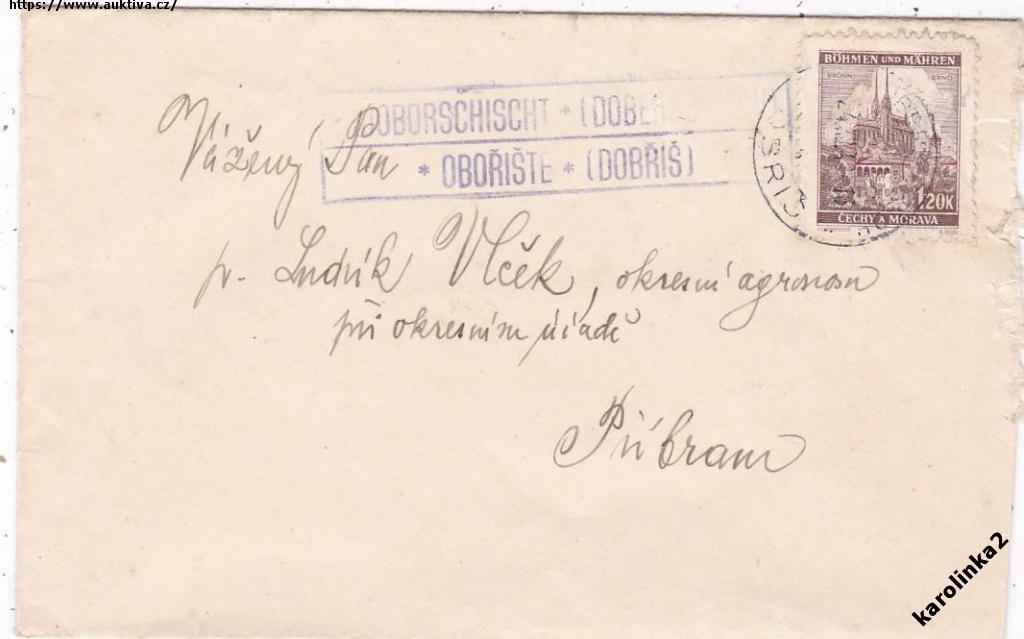 https://www.auktiva.cz/
BÖHMEN UND MÄHREN
BRÜNN BRNO
1.20K
ČECHY A MORAVA
OBORSCHISCHT * (DOBE
* OBOŘIŠTE * (DOBŘIŠ)
Vážený Pan
p. Ludvík Vlček, okresní agronom
při okresním úřadě
Příbram
karolinka2